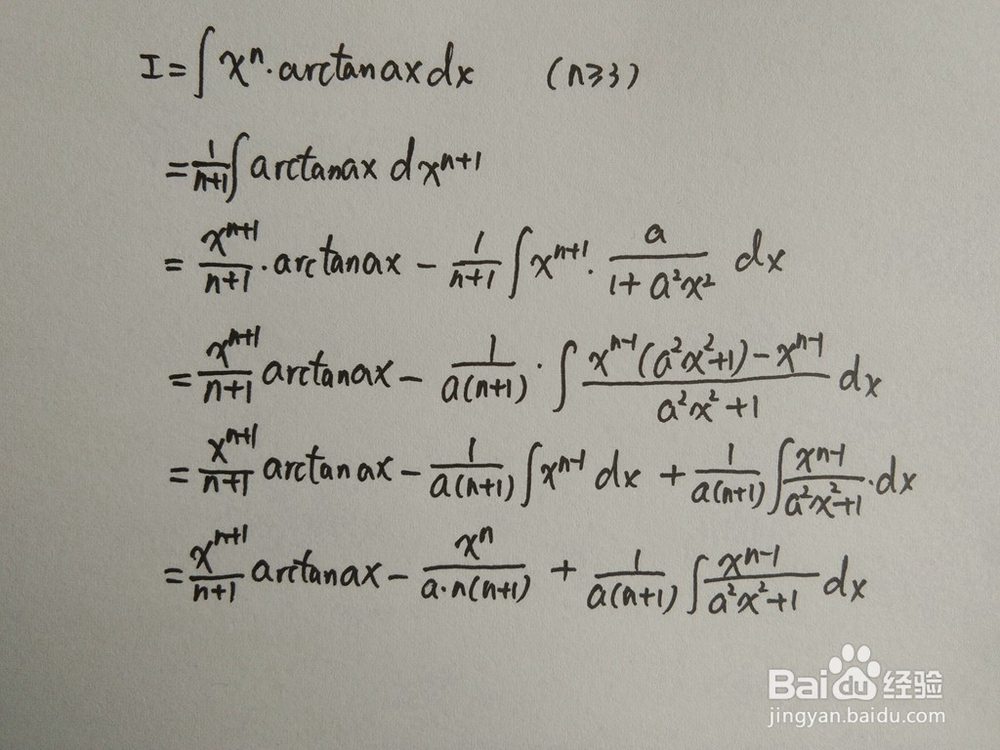 I = ∫ xⁿ · arctanax dx (n≥3)
= 1/(n+1) ∫ arctanax dxⁿ⁺¹
= xⁿ⁺¹/(n+1) · arctanax − 1/(n+1) ∫ xⁿ⁺¹ · a/(1+a²x²) dx
= xⁿ⁺¹/(n+1) arctanax − 1/(a(n+1)) · ∫ (xⁿ⁻¹(a²x²+1)−xⁿ⁻¹)/(a²x²+1) dx
= xⁿ⁺¹/(n+1) arctanax − 1/(a(n+1)) ∫ xⁿ⁻¹ dx + 1/(a(n+1)) ∫ xⁿ⁻¹/(a²x²+1) · dx
= xⁿ⁺¹/(n+1) arctanax − xⁿ/(a·n(n+1)) + 1/(a(n+1)) ∫ xⁿ⁻¹/(a²x²+1) dx
Baidu经验
jingyan.baidu.com